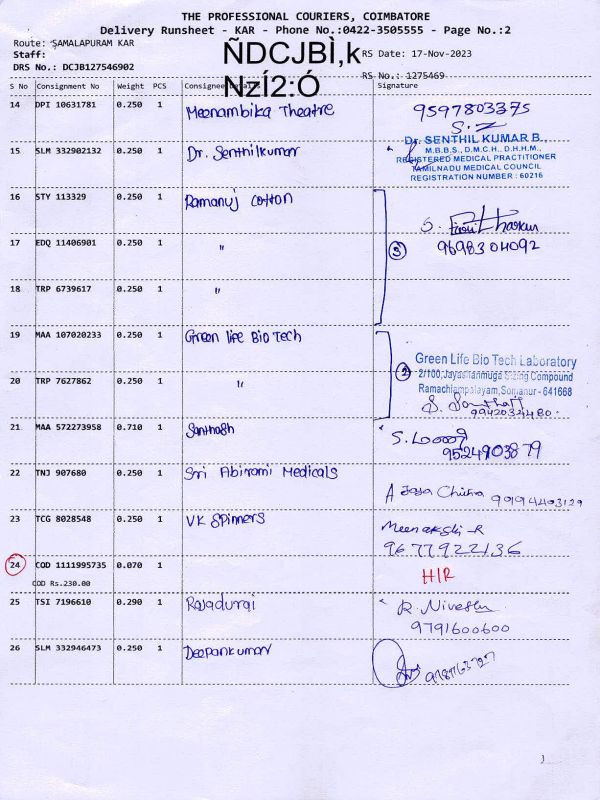 THE PROFESSIONAL COURIERS, COIMBATORE
Delivery Runsheet - KAR - Phone No.:0422-3505555 - Page No.:2
Route: SAMALAPURAM KAR
Staff:
DRS No.: DCJB127546902
ÑDCJBÌ,k
NzÍ2:Ó
RS Date: 17-Nov-2023
RS No.: 1275469
S No Consignment No Weight PCS Consignee Details Signature
14 DPI 10631781 0.250 1 Meenambika Theatre 9597803375
15 SLM 332902132 0.250 1 Dr. Senthilkumar
Dr. SENTHIL KUMAR B.,
M.B.B.S., D.M.C.H., D.H.H.M.,
REGISTERED MEDICAL PRACTITIONER
TAMILNADU MEDICAL COUNCIL
REGISTRATION NUMBER : 60216
16 STY 113329 0.250 1 Ramanuj Cotton
17 EDQ 11406901 0.250 1 " 3 9698304092
18 TRP 6739617 0.250 1 "
19 MAA 107020233 0.250 1 Green life Bio Tech
20 TRP 7627862 0.250 1 " 2
Green Life Bio Tech Laboratory
2/100, Jayashanmuga Sizing Compound
Ramachiampalayam, Somanur - 641668
9942034480
21 MAA 572273958 0.710 1 Santhosh
9524903879
22 TNJ 907680 0.250 1 Sri Abirami Medicals
A Jaya Chitra
23 TCG 8028548 0.250 1 VK Spinners Meenakshi-R
9677922136
24 COD 1111995735 0.070 1 H/R
COD Rs.230.00
25 TSI 7196610 0.290 1 Rajadurai R. Nivesh
9791600600
26 SLM 332946473 0.250 1 Deepankumar